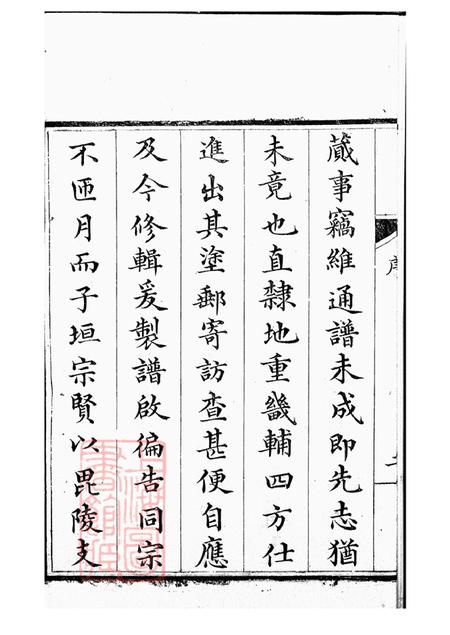 蕆事竊維通譜未成即先志猶
未竟也直隸地重畿輔四方仕
進出其塗郵寄訪查甚便自應
及今修輯爰製譜啟徧告同宗
不匝月而子垣宗賢以毘陵支